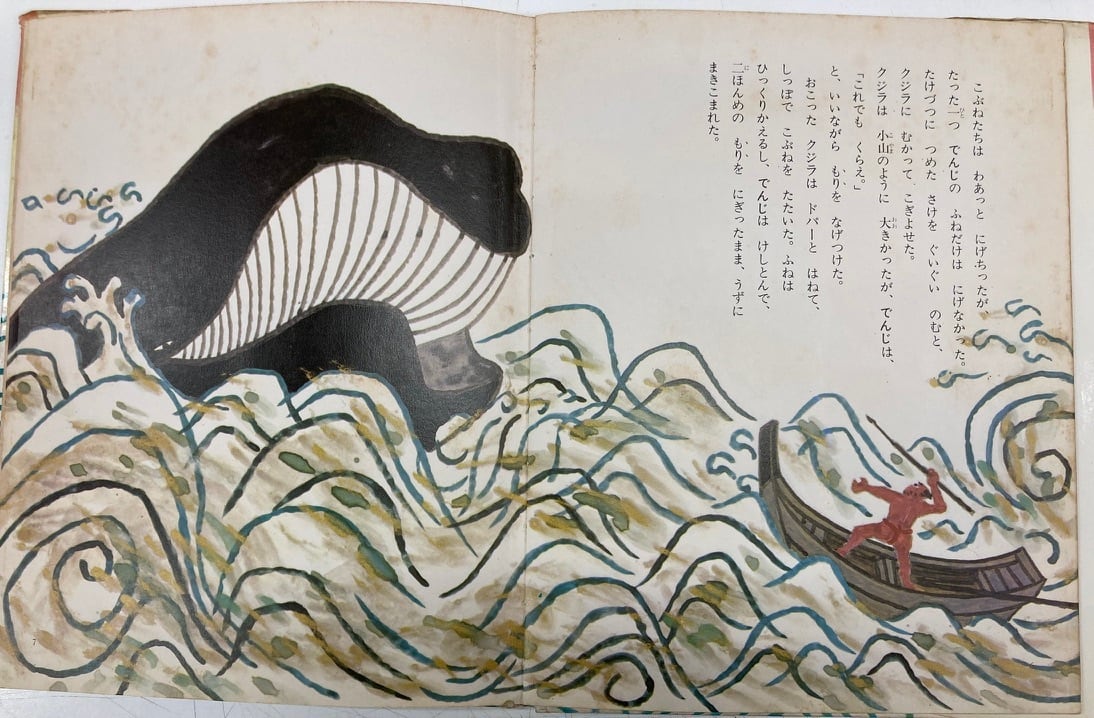 こぶねたちは　わあっと　にげちったが、
たった一つ　でんじの　ふねだけは　にげなかった。
たけづつに　つめた　さけを　ぐいぐい　のむと、
クジラに　むかって　こぎよせた。
クジラは　小山のように　大きかったが、でんじは、
「これでも　くらえ。」
と、いいながら　もりを　なげつけた。
おこった　クジラは　ドバーと　はねて、
しっぽで　こぶねを　たたいた。ふねは
ひっくりかえるし、でんじは　けしとんで、
二ほんめの　もりを　にぎったまま、うずに
まきこまれた。
7